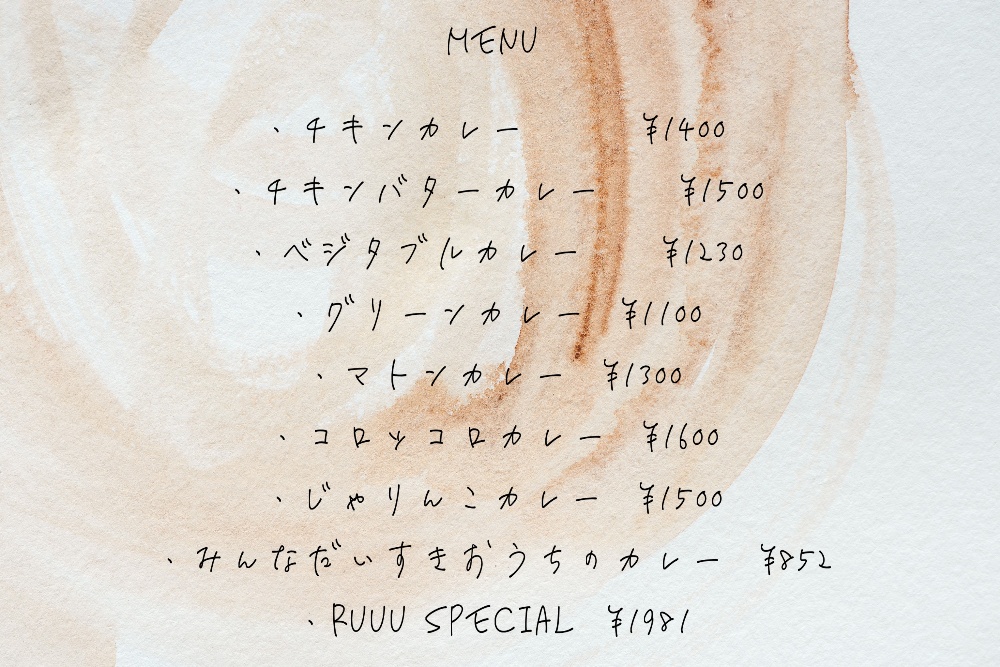 MENU
・チキンカレー ¥1400
・チキンバターカレー ¥1500
・ベジタブルカレー ¥1230
・グリーンカレー ¥1100
・マトンカレー ¥1300
・コロッコロカレー ¥1600
・じゃりんこカレー ¥1500
・みんなだいすきおうちのカレー ¥852
・RUUU SPECIAL ¥1981